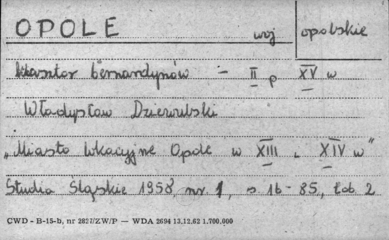 OPOLE woj opolskie
klasztor bernardynów - II p XV w
Władysław Dziewulski
"Miasto lokacyjne Opole w XIII - XIV w"
Studia Śląskie 1958, nr. 1, s. 16-85, tab. 2
CWD - B-15-b, nr 2827/ZW/P — WDA 2694 13.12.62 1.700.000